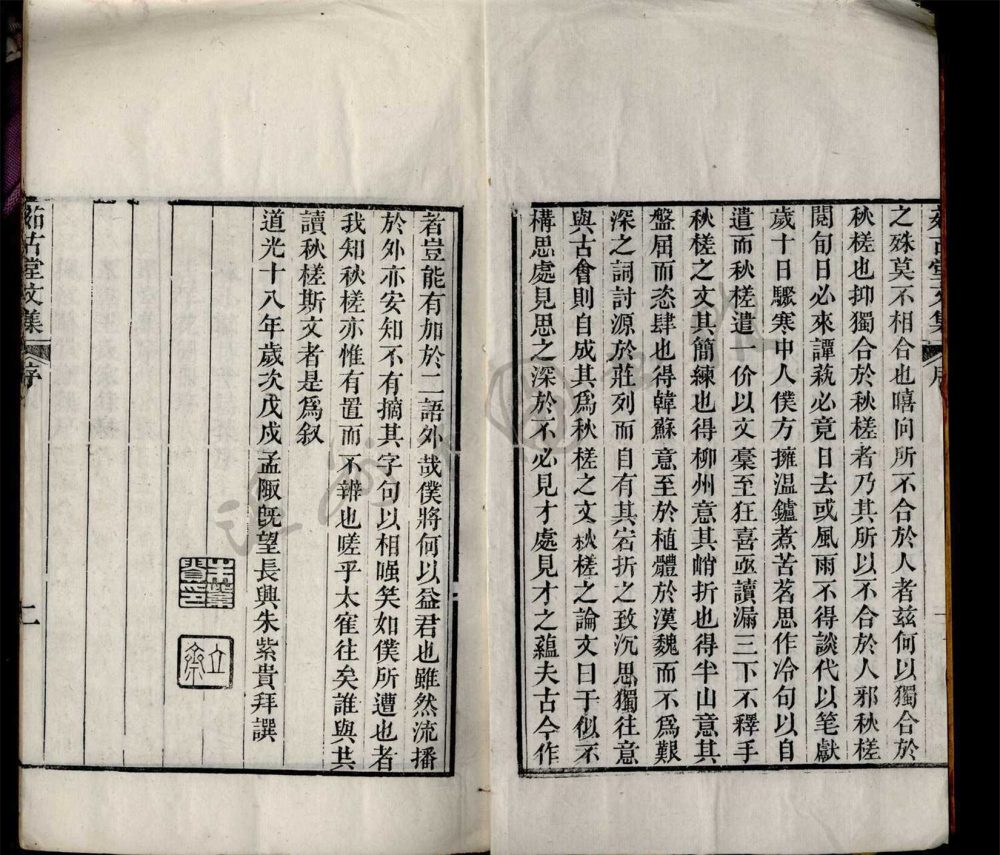 之殊莫不相合也嘻向所不合於人者兹何以獨合於
秋槎也抑獨合於秋槎者乃其所以不合於人邪秋槎
閱旬日必來譚萟必竟日去或風雨不得談代以笔獻
歲十日驟寒中人僕方擁温鑪煮苦茗思作冷句以自
遣而秋槎遣一价以文稾至狂喜亟讀漏三下不釋手
秋槎之文其簡練也得柳州意其峭折也得半山意其
盤屈而恣肆也得韓蘇意至於植體於漢魏而不爲艱
深之詞討源於莊列而自有其宕折之致沉思獨往意
與古會則自成其爲秋槎之文秋槎之論文曰于似不
構思處見思之深於不必見才處見才之蘊夫古今作
者豈能有加於二語外哉僕將何以益君也雖然流播
於外亦安知不有摘其字句以相嗤笑如僕所遭也者
我知秋槎亦惟有置而不辨也嗟乎太隺往矣誰與共
讀秋槎斯文者是爲叙
道光十八年歲次戊戍孟陬旣望長興朱紫貴拜譔
立齋
古堂文集
序
二